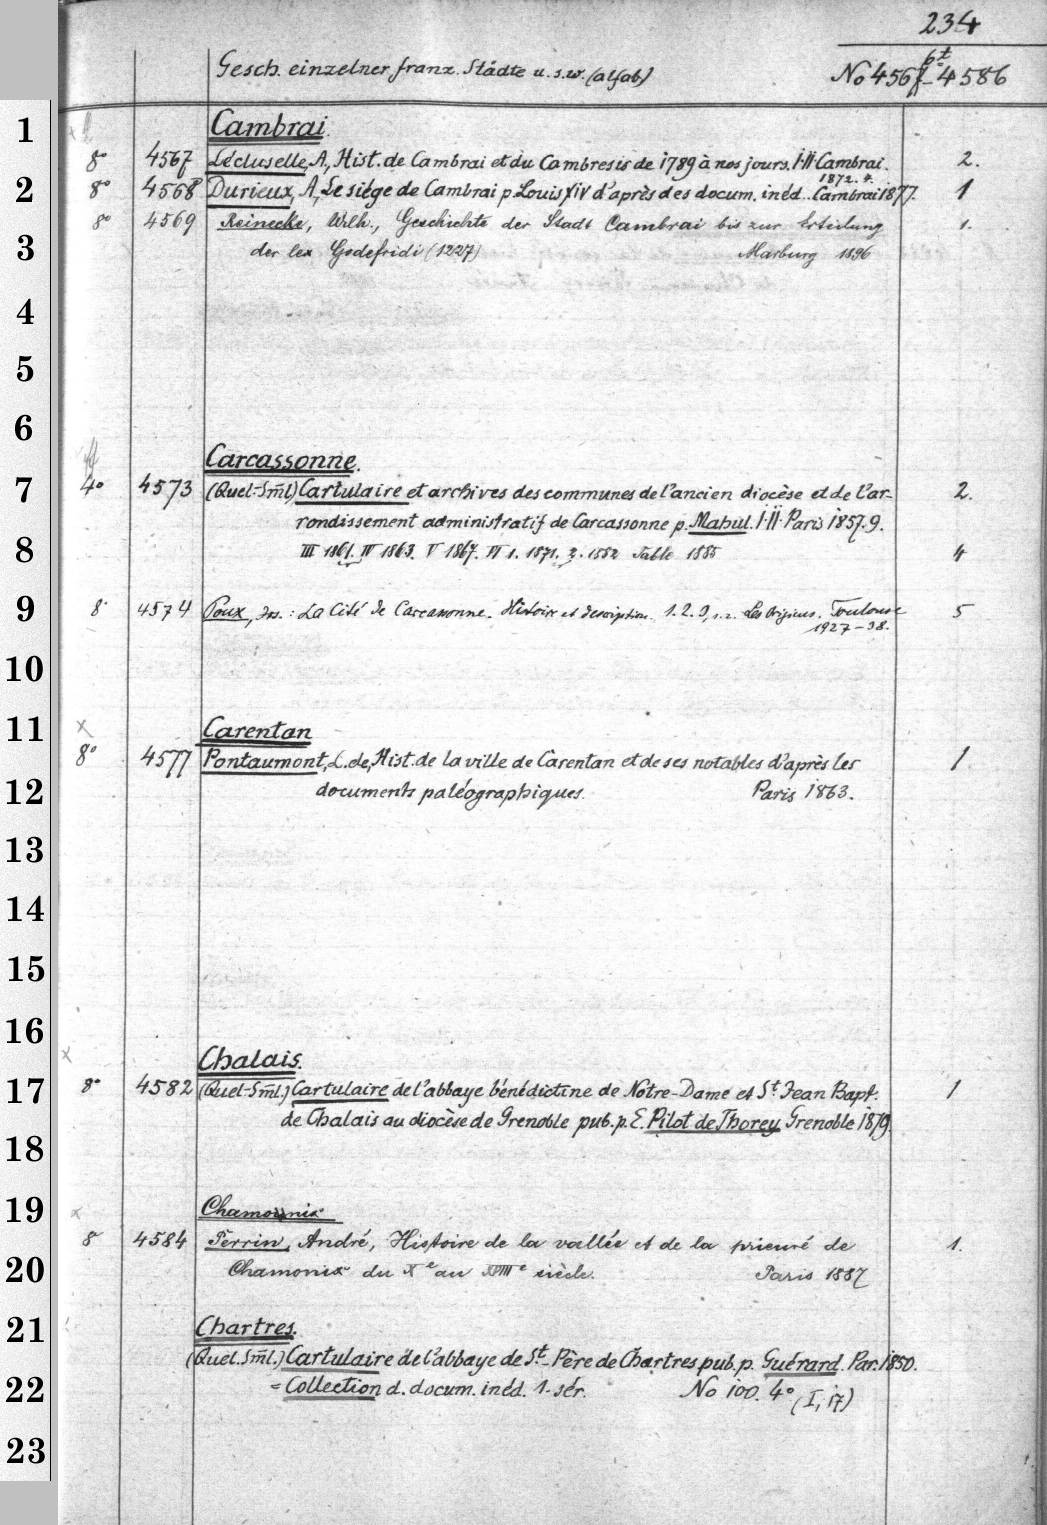 234
Gesch. einzelner franz. Städte u. s. w. (alfab)
6t
No 4567-4586
1
Cambrai.
8° 4567 Lécluselle, A, Hist. de Cambrai et du Cambresis de 1789 à nos jours. I.II Cambrai. 2.
1872. 4.
2
8° 4568 Durieux, A, Le siége de Cambrai p. Louis XIV d'après des docum. inéd.. Cambrai 1877. 1
8° 4569 Reinecke, Wilh., Geschichte der Stadt Cambrai bis zur Erteilung 1.
3
der lex Godefridi (1227) Marburg 1896
4
5
6
Carcassonne.
7
4° 4573 (Quel-Sml) Cartulaire et archives des communes de l'ancien diocèse et de l'ar- 2.
rondissement administratif de Carcassonne p. Mahul. I.II. Paris 1857.9.
8
III 1861. IV 1863. V 1867. VI 1. 1871. 2. 1882 Table 1885 4
9
8° 4574 Poux, Jos.: La Cité de Carcassonne. Histoire et description. 1. 2. 3, 1.2. Les Origines. Toulouse 5
1927-38.
10
11
x
Carentan
8° 4577 Pontaumont, L. de, Hist. de la ville de Carentan et de ses notables d'après les 1
12
documents paléographiques. Paris 1863.
13
14
15
16
x
Chalais.
17
8° 4582 (Quel-Sml.) Cartulaire de l'abbaye bénédictine de Nôtre-Dame et St Jean Bapt. 1
de Chalais au diocèse de Grenoble pub. p. E. Pilot de Thorey Grenoble 1879.
18
19
x
Chamounix
8° 4584 Perrin, André, Histoire de la vallée et de la prieuré de 1.
20
Chamonix du Xe au XVIIIe siècle. Paris 1887
21
Chartres.
(Quel. Sml.) Cartulaire de l'abbaye de St-Père de Chartres pub. p. Guérard. Par. 1850.
22
= Collection d. docum. inéd. 1. sér. No 100. 4° (I, 17)
23